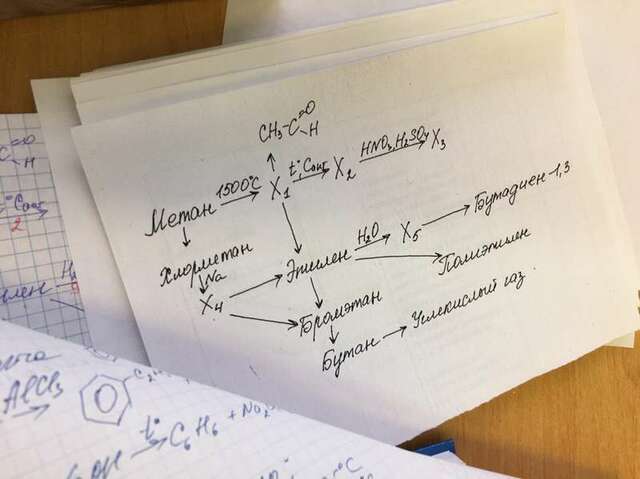 CH₃-C=O
H
Метан 1500°C X₁ t°, Cакт X₂ HNO₃, H₂SO₄ X₃
Хлорметан
Na
X₄
Этилен H₂O X₅ Бутадиен-1,3
Полиэтилен
Бромэтан
Бутан Углекислый газ
C=O
H
t° Cакт
2
илен H₂
AlCl₃
t° C₆H₆ +